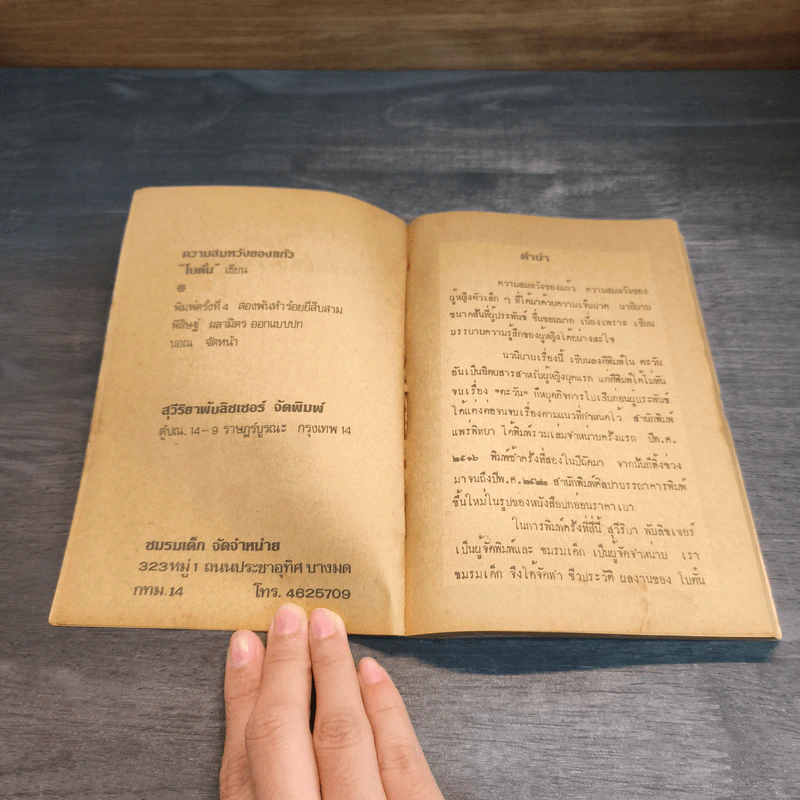 ความสมหวังของแก้ว
"โบตั๋น" เขียน
พิมพ์ครั้งที่ 4 สองพันห้าร้อยยี่สิบสาม
พิสิษฐ์ ผลามิตร ออกแบบปก
บอณ จัดหน้า
สุวีริยาพับลิชเชอร์ จัดพิมพ์
ตู้ปณ. 14-9 ราษฎร์บูรณะ กรุงเทพ 14
ชมรมเด็ก จัดจำหน่าย
323 หมู่ 1 ถนนประชาอุทิศ บางมด
กทม. 14 โทร. 4625709
คำนำ
ความสมหวังของแก้ว ความสมหวังของ
ผู้หญิงตัวเล็ก ๆ ที่ได้มาด้วยความเจ็บปวด นวนิยาย
ขนาดสั้นที่ผู้ประพันธ์ ชื่นชอบมาก เนื่องเพราะ เขียน
บรรยายความรู้สึกของผู้หญิงได้อย่างสะใจ
นวนิยายเรื่องนี้ เขียนลงตีพิมพ์ใน ตะวัน
อันเป็นนิตยสารสำหรับผู้หญิงยุคแรก แต่ตีพิมพ์ได้ไม่ทัน
จบเรื่อง "ตะวัน" ก็หยุดกิจการไปเสียก่อนผู้ประพันธ์
ได้แต่งต่อจนจบเรื่องตามแนวที่กำหนดไว้ สำนักพิมพ์
แพร่พิทยา ได้พิมพ์รวมเล่มจำหน่ายครั้งแรก ปีพ.ศ.
๒๕๑๖ พิมพ์ซ้ำครั้งที่สองในปีถัดมา จากนั้นก็ทิ้งช่วง
มาจนถึงปีพ.ศ.๒๕๒๑ สำนักพิมพ์ศิลปาบรรณาคารพิมพ์
ขึ้นใหม่ในรูปของหนังสือปกอ่อนราคาเยา
ในการพิมพ์ครั้งที่สี่นี้ สุวีริยา พับลิชเชอร์
เป็นผู้จัดพิมพ์และ ชมรมเด็ก เป็นผู้จัดจำหน่าย เรา
ชมรมเด็ก จึงได้จัดทำ ชีวประวัติ ผลงานของ โบตั๋น